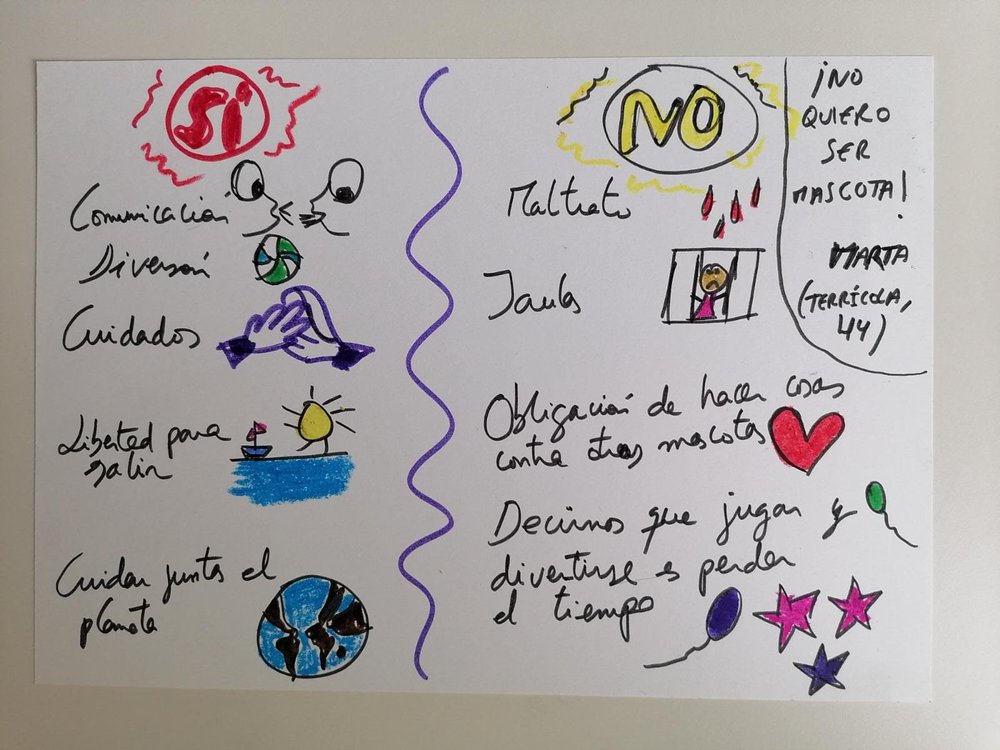 SÍ
Comunicación
Diversión
Cuidados
Libertad para
salir
Cuidar juntas el
planeta
NO
Maltrato
Jaulas
Obligación de hacer cosas
contra otras mascotas
Decirnos que jugar y
divertirse es perder
el tiempo
¡NO
QUIERO
SER
MASCOTA!
MARTA
(TERRÍCOLA,
44)